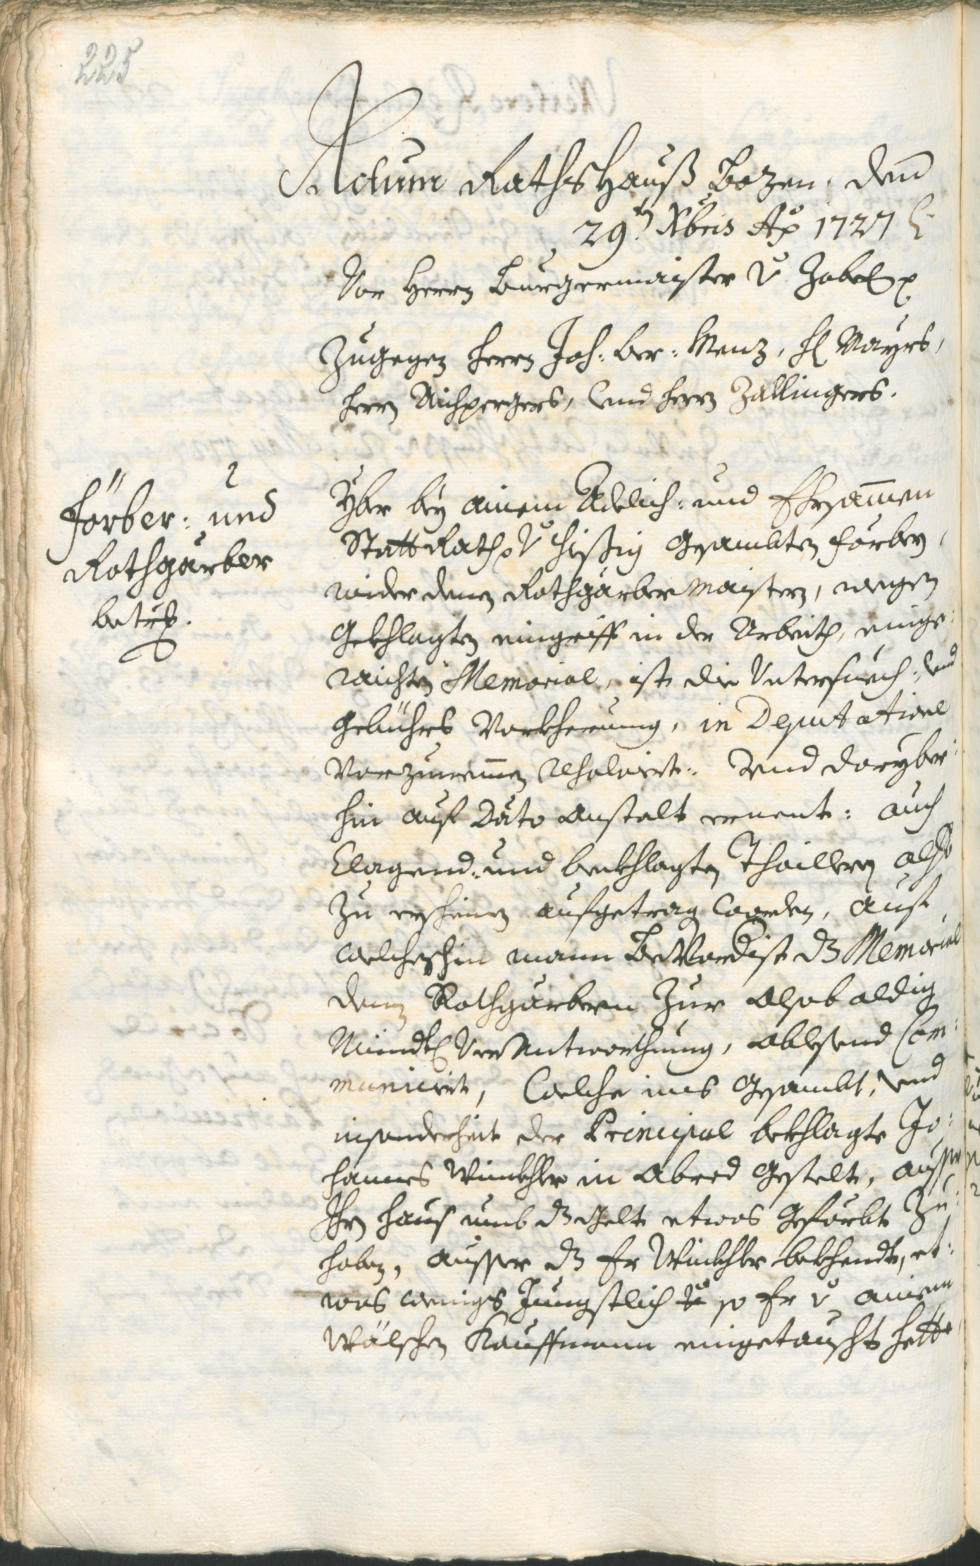 225
Actum Rathshauß Bozen, den
29.t Xbris Ao 1727
Vor Herrn Burgermaister v: Zobel
Zugegen Herrn Joh: Ber: Menz, H Mayrs,
Herrn Aichpergers, Und Herrn Zallingers.
Förber: und
Rothgärber
betrf.
Yber bey ainem Adelich: und Ehrsammen
Statt Rath v: hießig Gesambten Förbern,
wider denen Rothgärbermaistern, wegen
Gekhlagten eingriff in der Arbeith, einge:
raichten Memorial, ist die Untersuech: Und
Gebührs Vorkherung, in Deputatione
Vorzunemen resolvirt: Und daryber:
hin auf Dato Anstalt ernent: auch
Clagend: und bekhlagten Thaillen alhero
Zu erscheinen aufgetragen worden, auf
welcheshin mann bevordist dz Memorial
denen Rothgärbern Zur alsobaldig
Mündtl Verantworthung, ablesend Com:
municirt, Welche ins Gesambt, Und
insonderheit der Principal bekhlagte Jo:
hannes Winkhler in Abred gestelt, ausser
Ihren haus umb dz Gelt etwas Geförbt Zu
haben, ausser dz Er Winkhler bekhendt, et:
was weniges Jüngstlich so Er v: ainem
Wälschen Kauffmann eingetauscht hette